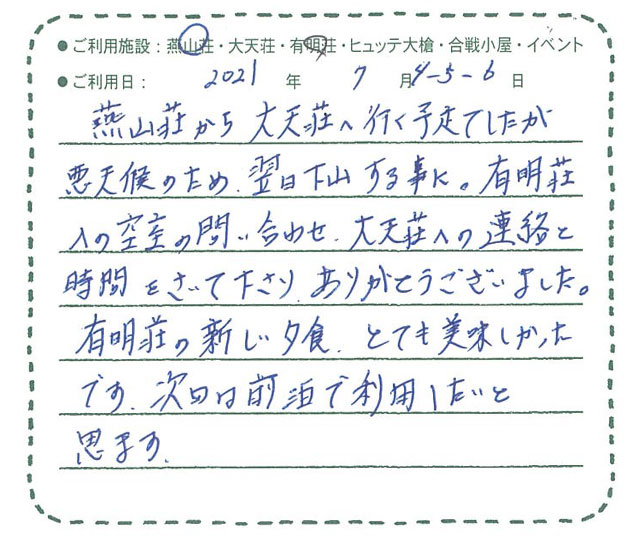 ●ご利用施設：燕山荘・大天荘・有明荘・ヒュッテ大槍・合戦小屋・イベント
●ご利用日： 2021 年 7 月 4-5-6 日
燕山荘から大天荘へ行く予定でしたが
悪天候のため、翌日下山する事に。有明荘
への空室の問い合わせ、大天荘への連絡と
時間をさいて下さり、ありがとうございました。
有明荘の新しい夕食、とても美味しかった
です。次回は前泊で利用したいと
思ます。